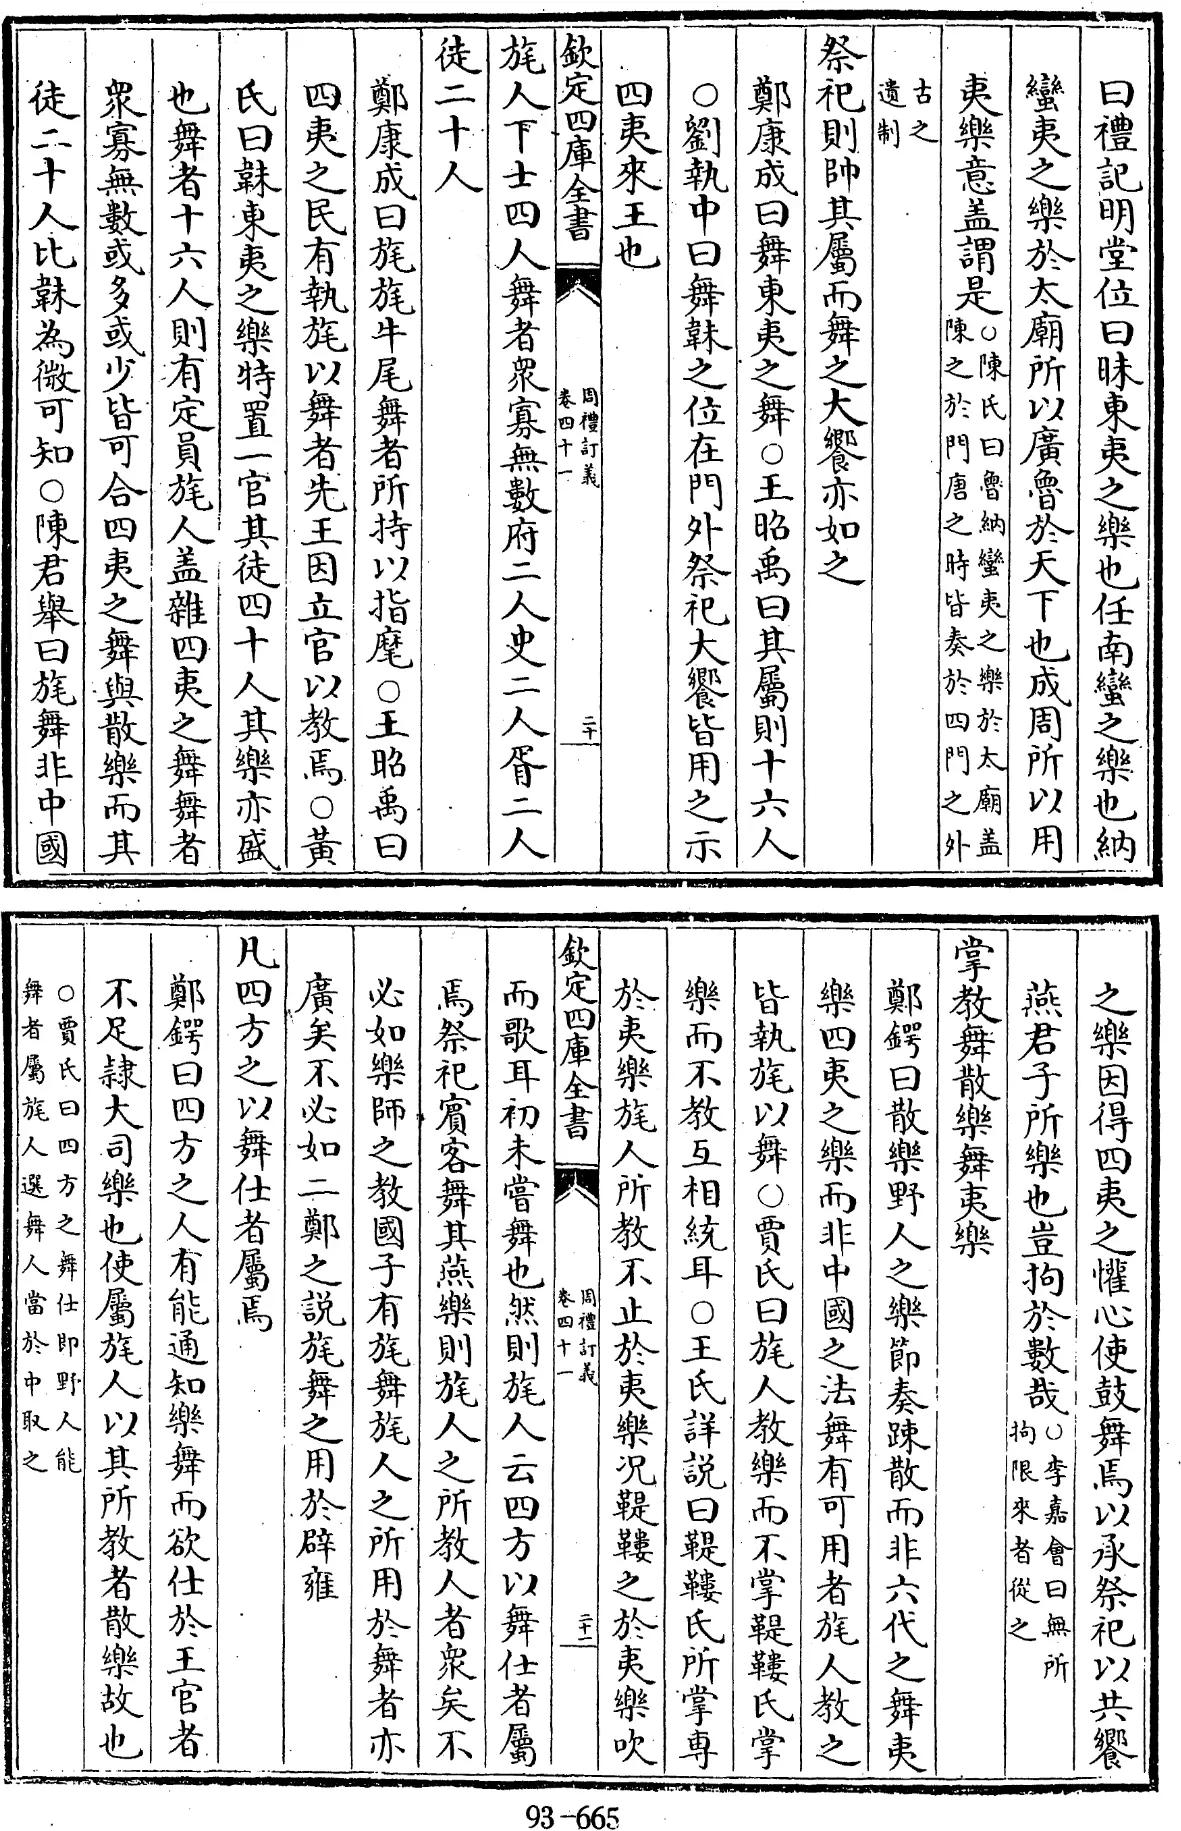 曰禮記明堂位曰昧東夷之樂也任南蠻之樂也納
蠻夷之樂於太廟所以廣魯於天下也成周所以用
夷樂意盖謂是○陳氏曰魯納蠻夷之樂於太廟盖
陳之於門唐之時皆奏於四門之外
古之
遺制
祭祀則帥其屬而舞之大饗亦如之
鄭康成曰舞東夷之舞○王昭禹曰其屬則十六人
○劉執中曰舞韎之位在門外祭祀大饗皆用之示
四夷來王也
欽定四庫全書
周禮訂義
卷四十一
二十
旄人下士四人舞者衆寡無數府二人史二人胥二人
徒二十人
鄭康成曰旄旄牛尾舞者所持以指麾○王昭禹曰
四夷之民有執旄以舞者先王因立官以教焉○黄
氏曰韎東夷之樂特置一官其徒四十人其樂亦盛
也舞者十六人則有定員旄人盖雜四夷之舞舞者
衆寡無數或多或少皆可合四夷之舞與散樂而其
徒二十人比韎為微可知○陳君舉曰旄舞非中國
之樂因得四夷之懽心使鼓舞焉以承祭祀以共饗
燕君子所樂也豈拘於數哉○李嘉會曰無所
拘限來者從之
掌教舞散樂舞夷樂
鄭鍔曰散樂野人之樂節奏踈散而非六代之舞夷
樂四夷之樂而非中國之法舞有可用者旄人教之
皆執旄以舞○賈氏曰旄人教樂而不掌鞮鞻氏掌
樂而不教互相統耳○王氏詳説曰鞮鞻氏所掌専
於夷樂旄人所教不止於夷樂况鞮鞻之於夷樂吹
欽定四庫全書
周禮訂義
卷四十一
二十一
而歌耳初未嘗舞也然則旄人云四方以舞仕者屬
焉祭祀賓客舞其燕樂則旄人之所教人者衆矣不
必如樂師之教國子有旄舞旄人之所用於舞者亦
廣矣不必如二鄭之説旄舞之用於辟雍
凡四方之以舞仕者屬焉
鄭鍔曰四方之人有能通知樂舞而欲仕於王官者
不足隷大司樂也使屬旄人以其所教者散樂故也
○賈氏曰四方之舞仕即野人能
舞者屬旄人選舞人當於中取之
93-665